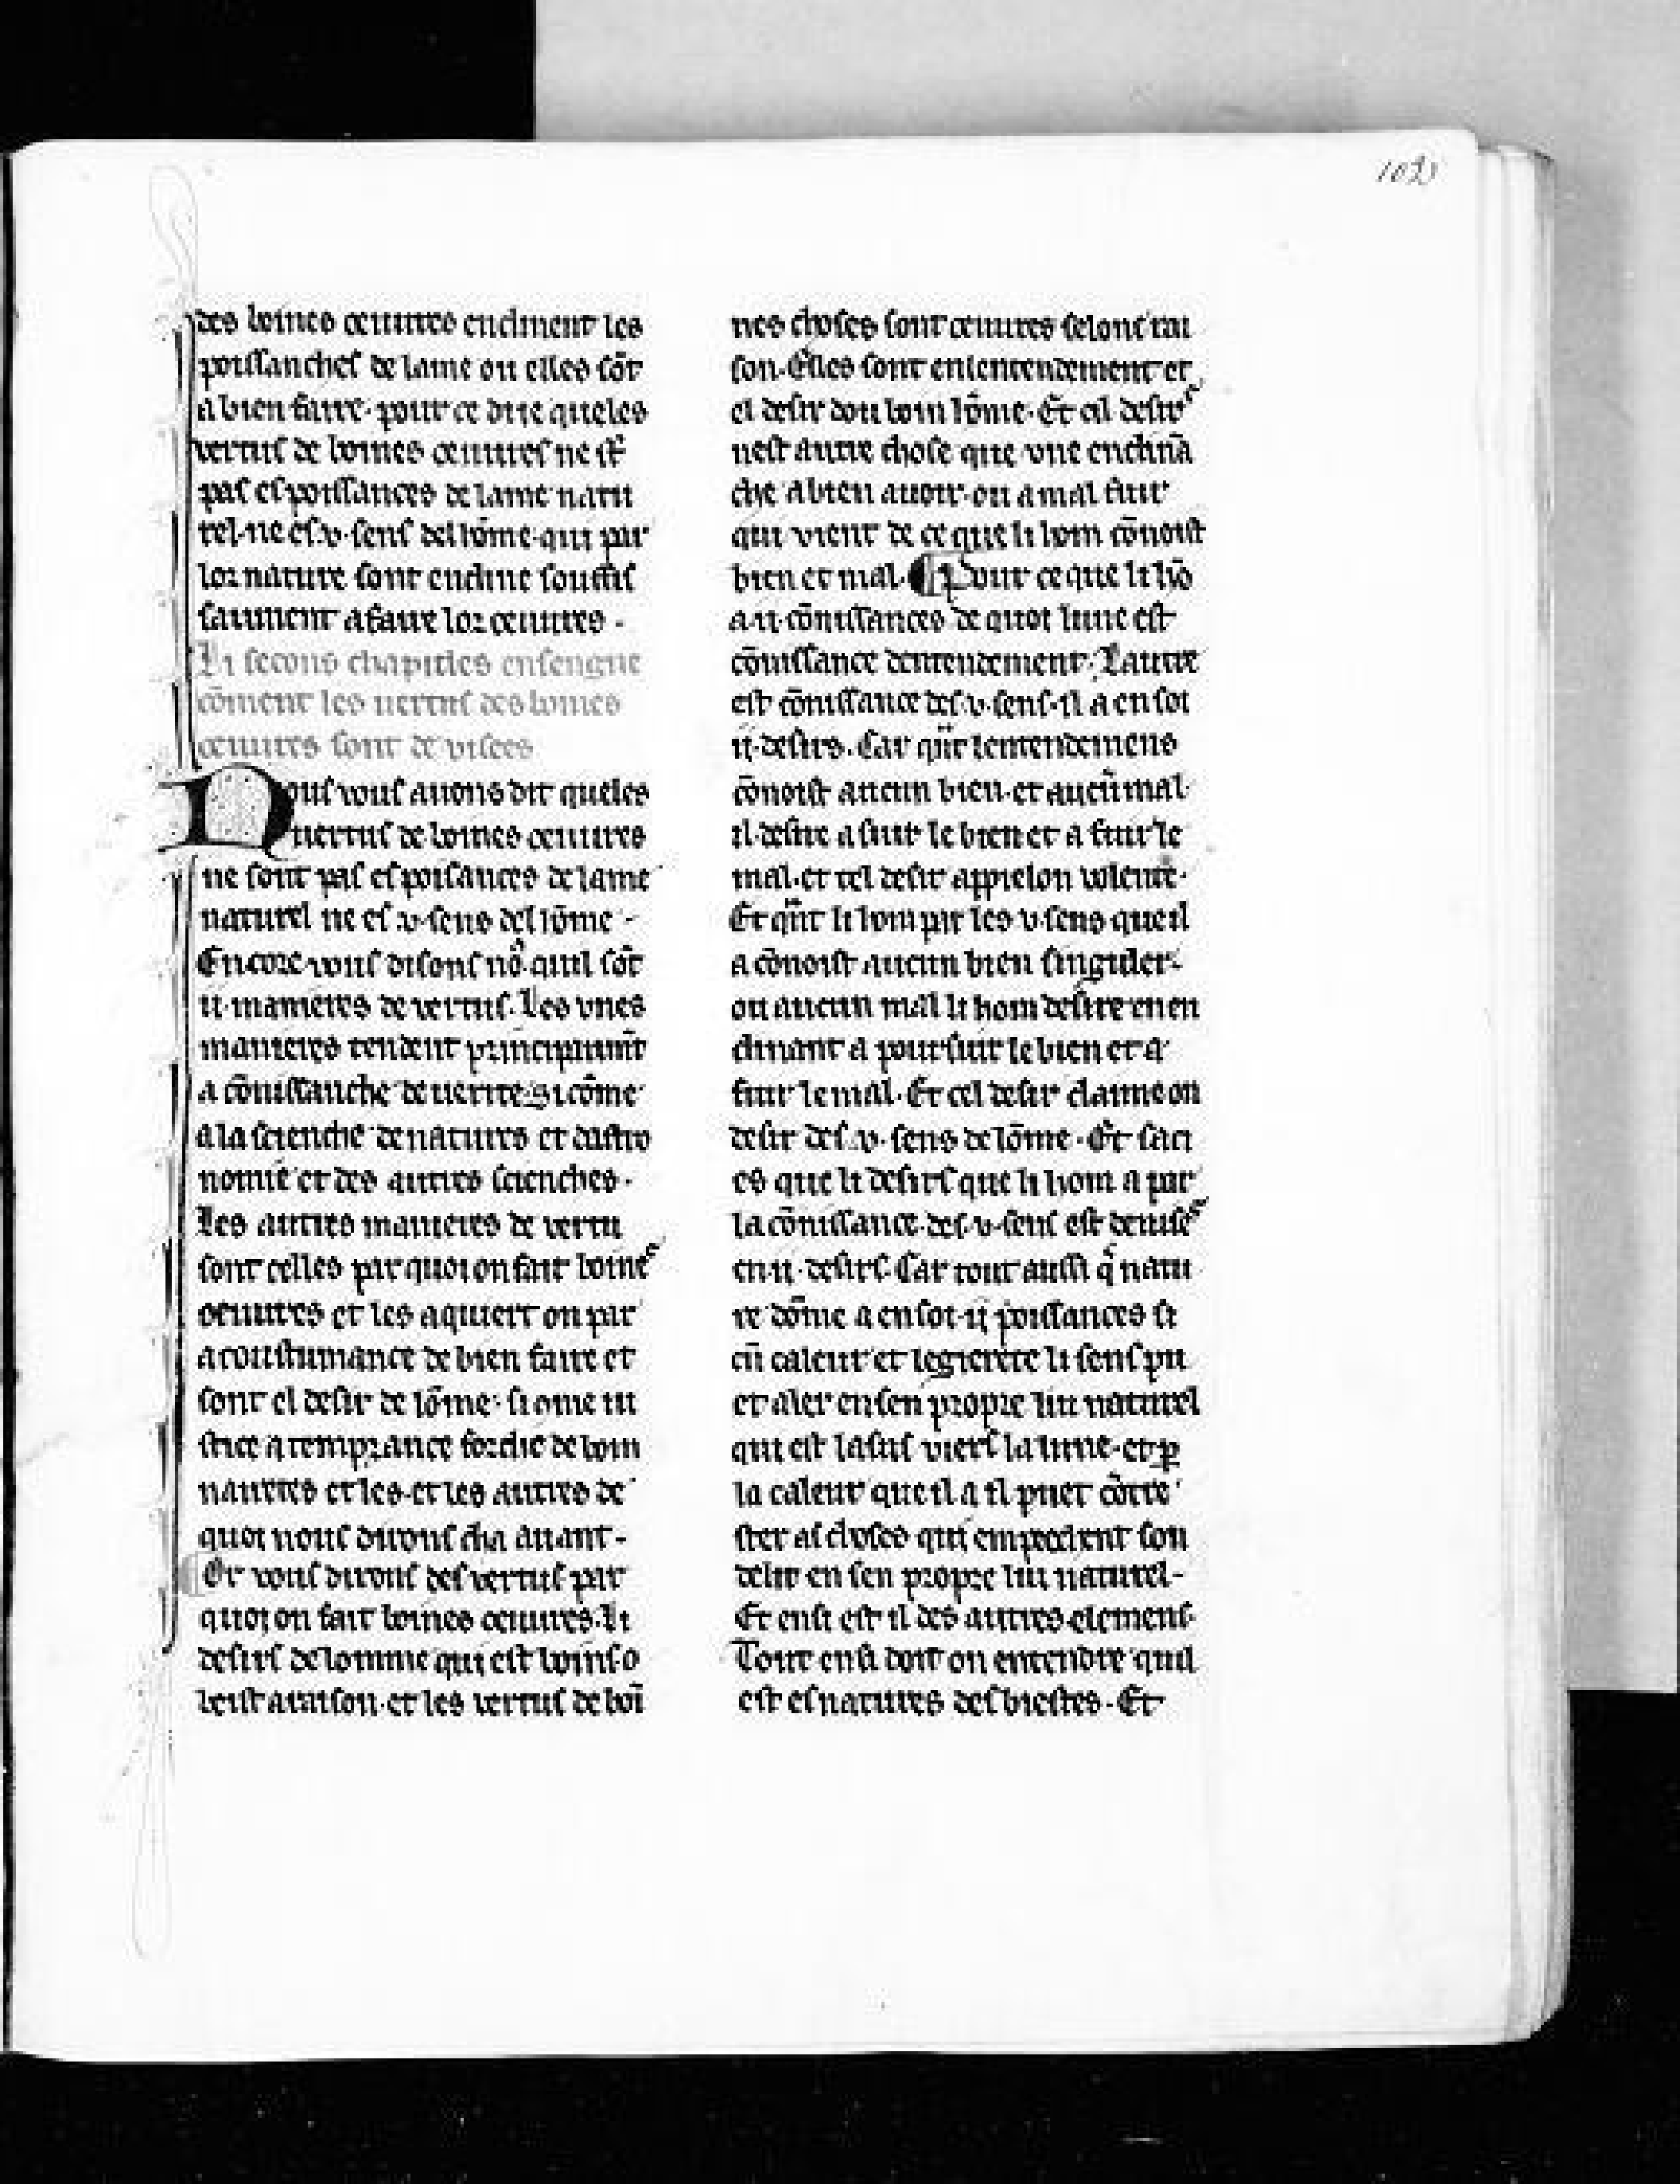 102
des boines œuures enclinent les
poissanches de lame ou elles sōt
a bien faire· pour ce di ie queles
vertus de boines œuures ne sūt
pas es poissances de lame natu
rel·ne es·v·sens del hōme·qui par
lor nature sont encline souffis
saument a faire lor œuures ·
Li secons chapitles ensengne
cōment les uertus des boines
œuures sont de visees
Nous vous auons dit queles
uertus de boines œuures
ne sont pas es poisances de lame
naturel ne es ·v·sens del hōme ·
Encore vous disons nō quil sōt
ii· manieres de vertus. Les vnes
manieres tendent principaumēt
a cōnissanche de uerite·si cōme
a la scienche de natures et dastro
nomie et des autres scienches ·
Les autres manieres de vertu
sont celles par quoi on fait boines
oeuures et les aquiert on par
acoustumance de bien faire et
sont el desir de lōme· si ome iu
stice atemprance forche de boin
nairetes et les·et les autres de
quoi nous dirons cha auant ·
Or vous dirons des vertus par
quoi on fait boines œuures. Li
desirs de lomme qui est boins o
beist a raison·et les vertus de boi
nes choses sont œuures selonc rai
son· Elles sont en lentendement et
el desir dou boin hōme· Et cil desirs
nest autre chose que vne enclinā
che a bien auoir·ou a mal fuir
qui vient de ce que li hom cōnoist
bien et mal· ¶ Pour ce que li hō
a·ii·cōnissances de quoi lune est
cōnissance dentendement· Lautre
est cōnissance des·v·sens·il a en soi
ii·desirs. Car qāt lentendemens
cōnoist aucun bien·et aucū mal·
il·desire a suir le bien et a fuir le
mal·et tel desir appielon volente·
Et qāt li hom par les v·sens que il
a cōnoist aucun bien singuler·
ou aucun mal li hom desire en en
clinant a poursuir le bien et a
fuir le mal· Et cel desir claime on
desir des ·v· sens de lōme · Et saci
es que li desirs que li hom a par
la cōnissance·des·v·sens est deuises
en·ii· desirs· Car tout aussi q̄ natu
re dōme a en soi·ii poissances si
cū caleur et legierete li sens pu
et aler en sen propre liu naturel
qui est lasus viers la lune·et ꝑ
la caleur que il a il puet cōtre
ster as choses qui empechent son
delir en sen propre liu naturel·
Et ensi est il des autres elemens·
Tout ensi doit on entendre quil
est es natures des biestes · Et